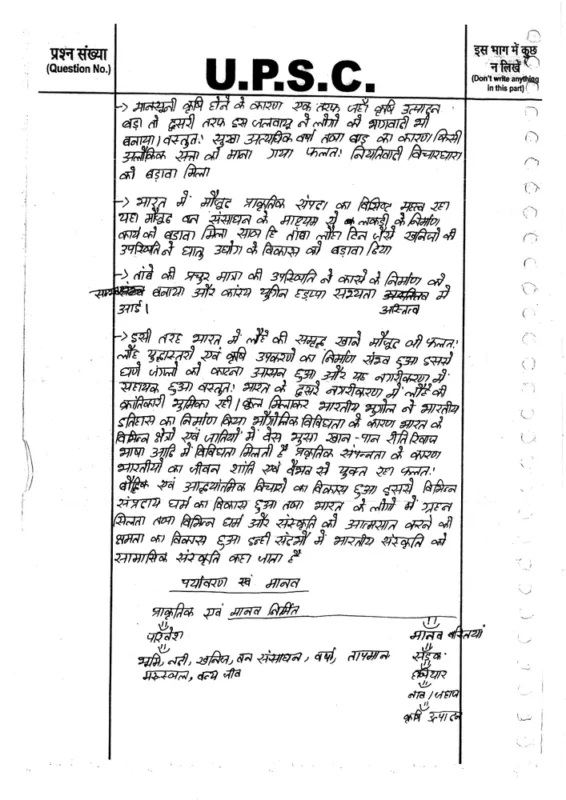 प्रश्न संख्या
(Question No.)
U.P.S.C.
इस भाग में कुछ
न लिखें
(Don't write anything
in this part)
-> मानसूनी कृषि होने के कारण एक तरफ जहाँ कृषि उत्पादन
बढ़ा तो दूसरी तरफ इस जलवायु ने लोगों को भाग्यवादी भी
बनाया। वस्तुत: सूखा अत्यधिक वर्षा तथा बाढ़ का कारण किसी
अलौकिक सत्ता को माना गया फलत: नियतिवादी विचारधारा
को बढ़ावा मिला
-> भारत में मौजूद प्राकृतिक संपदा का विशिष्ट महत्व रहा
यहा मौजूद वन संसाधन के माध्यम से लकड़ी के निर्माण
कार्य को बढ़ावा मिला साथ हि तांबा लौहा टिन जैसे खनिजो की
उपस्थिति ने धातु उद्योग के विकास को बढ़ावा दिया
-> तांबे की प्रचुर मात्रा की उपस्थिति ने कास्य के निर्माण को
बनाया और कास्य युगिन हड़प्पा सभ्यता अस्तित्व में
आई।
-> इसी तरह भारत में लौहे की समृद्ध खाने मौजूद थी फलत:
लौह युद्धास्त्रो एवं कृषि उपकरणो का निर्माण संभव हुआ इससे
घने जंगलो को काटना आसान हुआ और यह नगरीकरण में
सहायक हुआ वस्तुत: भारत के दूसरे नगरीकरण में लौहे की
क्रांतिकारी भूमिका रही। कुल मिलाकर भारतीय भूगोल ने भारतीय
इतिहास का निर्माण किया भौगोलिक विविधता के कारण भारत के
विभिन्न क्षेत्रो एवं जातियों में वेस भुसा खान-पान रीति रिवाज
भाषा आदि में विविधता मिलती है प्राकृतिक संपन्नता के कारण
भारतीयो का जीवन शांति एवं वैभव से युक्त रहा फलत:
बौद्धिक एवं आध्यात्मिक विचारो का विकास हुआ इससे विभिन्न
संप्रदाय धर्म का विकास हुआ तथा भारत के लोगो में ग्रहन
सिलता तथा विभिन्न धर्म और संस्कृति को आत्मसात करने की
क्षमता का विकास हुआ इन्ही संदर्भो में भारतीय संस्कृति को
सामासिक संस्कृति कहा जाता है
पर्यावरण एवं मानव
प्राकृतिक एवं मानव निर्मित
परिवेश
मानव बस्तियां
भूमि, नदी, खनिज, वन संसाधन, वर्षा, तापमान
सड़क
मरुस्थल, वन्य जीव
हथियार
नाव / जहाज
कृषि उत्पादन